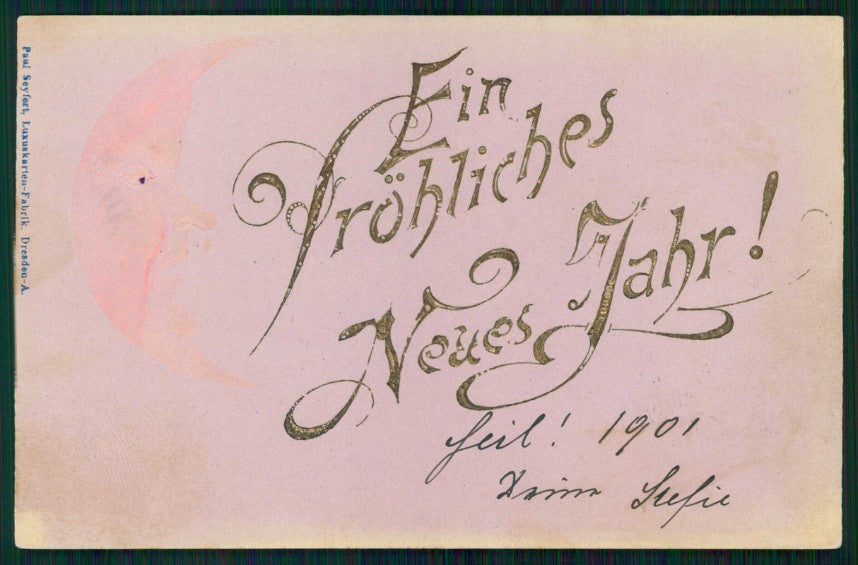 Ein
Fröhliches
Neues Jahr!
Heil! 1901
Deine Stefie
Paul Seyfert, Luxuskarten-Fabrik, Dresden-A.